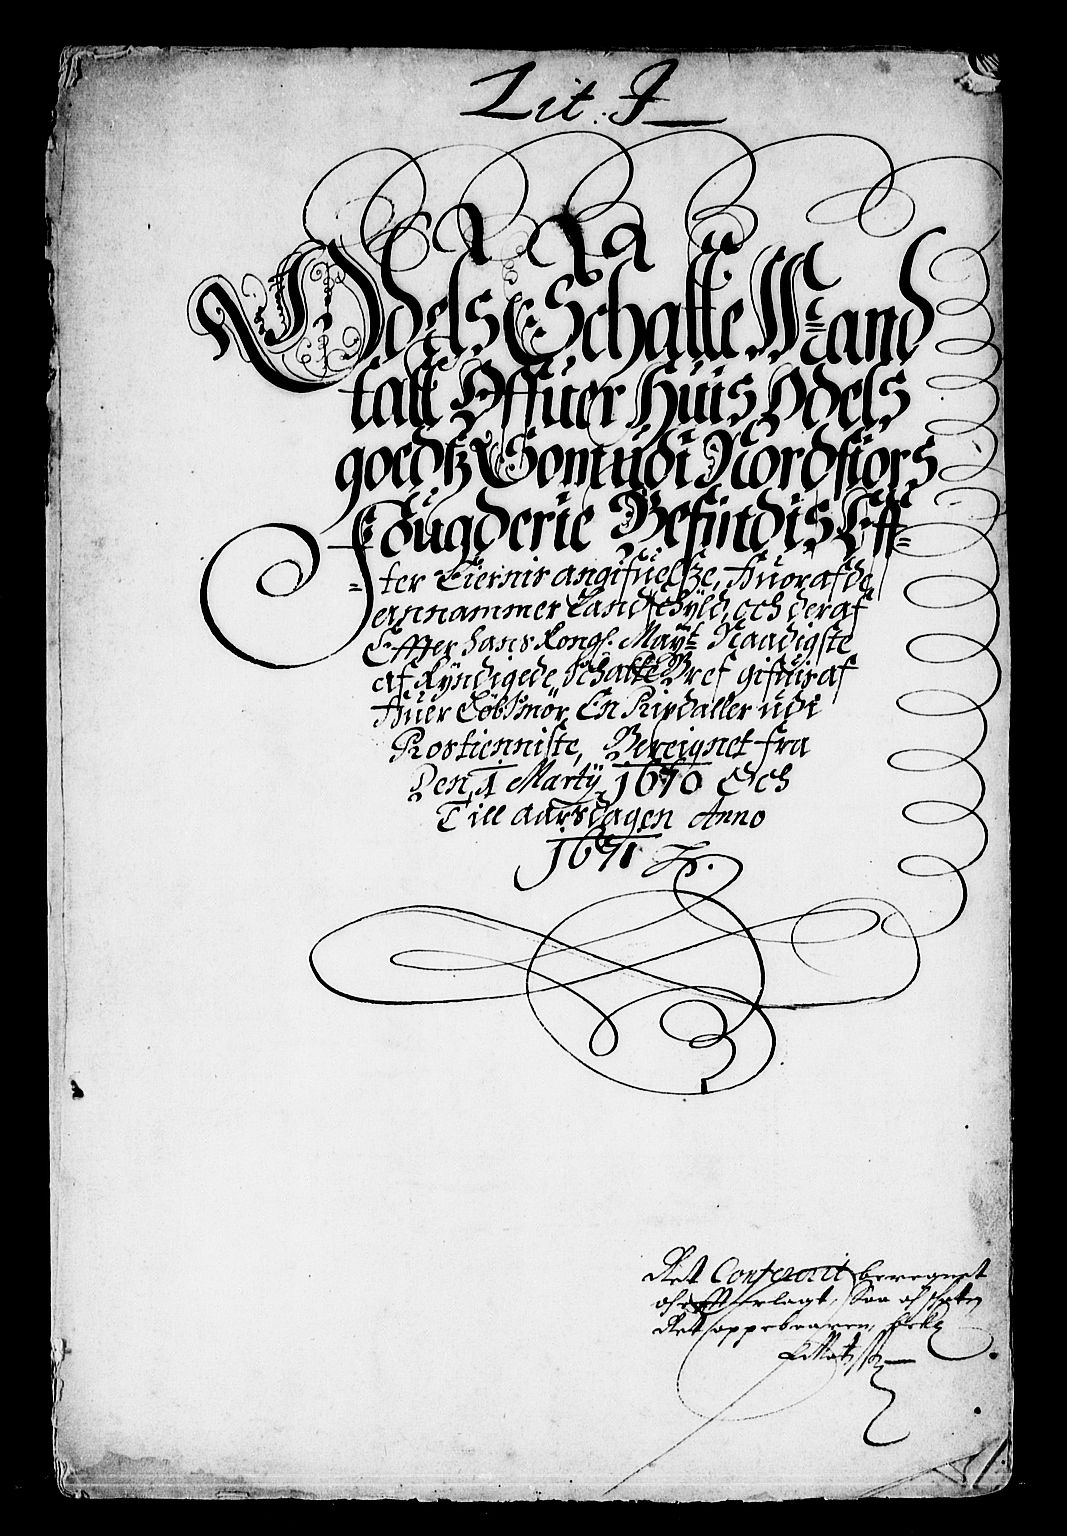 Lit. J
Odels Schatte Mand
tall Offuer Huis Odels
goedtz Som udi Nordfiors
Fougderie Befindis Eff=
=ter Eiernis angifuelsze, Huoraf de
annammer Landschyld, och deraf
Effter hans Kongl. Mayt Naadigste
af Kyndigede Schatte Bref gifuis af
Huer Løb Smør, En Rixdaller udi
Kostienniste, Bereignet fra
Den 1 Martij 1670 Och
Till aarsdagen Anno
1671
Ret Conferirit beregnet
oc